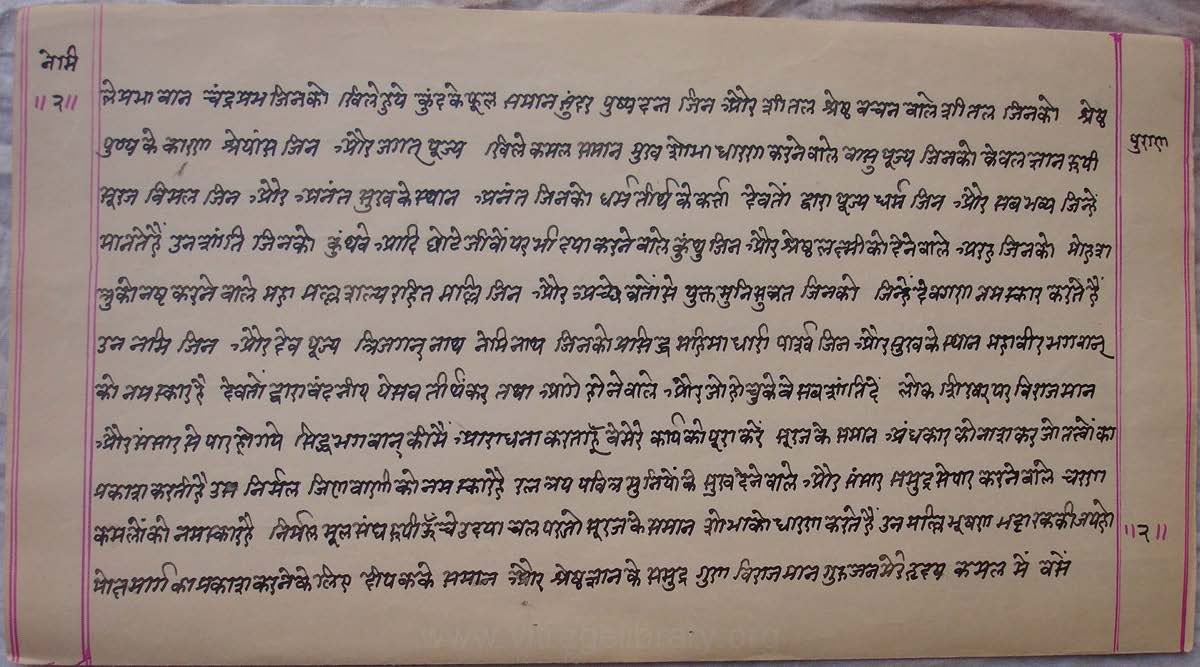 नेमि
॥२॥
चंद्रप्रभ जिनको खिले हुये कुंद के फूल समान सुंदर पुष्पदन्त जिन और शीतल श्रेष्ठ वचन वाले शीतल जिनको श्रेष्ठ
पुष्प के कारण श्रेयांस जिन और जगत् पूज्य खिले कमल समान मुख शोभा धारण करने वाले वासु पूज्य जिनको केवल ज्ञान रुपी
पुराण
सूरज विमल जिन और अनंत सुख के स्थान अनंत जिनको धर्म तीर्थ के कर्त्ता देवतों द्वारा पूज्य धर्म जिन और सब भव्य जिन्हें
मानते हैं उन शांति जिनको कुंथवे आदि छोटे जीवों पर भी दया करने वाले कुंथु जिन और श्रेष्ठ लक्ष्मी को देने वाले अरह जिनको मोहश
त्रुको नष्ट करने वाले महा मल्ल शल्य रहित मल्लि जिन और अच्छे व्रतों से युक्त मुनिसुव्रत जिनको जिन्हें देवगण नमस्कार करते हैं
उन नमि जिन और देव पूज्य त्रिजगन् नाथ नेमिनाथ जिनको प्रसिद्ध महिमा धारी पार्श्व जिन और सुख के स्थान महावीर भगवान्
को नमस्कार है देवतों द्वारा वंदनीय ये सब तीर्थंकर तथा आगे होने वाले और जो हो चुके वे सब शांति दें लोक शिखर पर विराजमान
और संसार से पार होगये सिद्ध भगवान् की मैं आराधना करता हूँ वे मेरे कार्य को पूरा करें सूरज के समान अंधकार को नाश कर जो तत्वों का
प्रकाश करती है उस निर्मल जिणवाणी को नमस्कार है रत्नत्रय पवित्र मुनियों के सुख देने वाले और संसार समुद्र से पार करने वाले चरण
कमलों को नमस्कार है निर्मल मूलसंघ रुपी ऊँचे उदयाचल पर जो सूरज के समान शोभा को धारण करते हैं उन मल्लि भूषण भट्टारक की जय हो
॥२॥
मोक्षमार्ग का प्रकाश करने के लिए दीपक के समान और श्रेष्ठ ज्ञान के समुद्र गुण विराजमान गुरुजन मेरे हृदय कमल में वसें